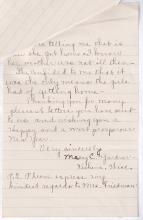 is telling me that is
she got home I knew
her mother was not all there.
She confided to me that it
was the only means the girl
had of getting home.
Thanking you for many
pleasant letters you have sent
to me and wishing you a
Happy and a most prosperous
New Year.
Very sincerely
Mary E. Gardner
P.S. Please express my
kindest regards to Mrs.